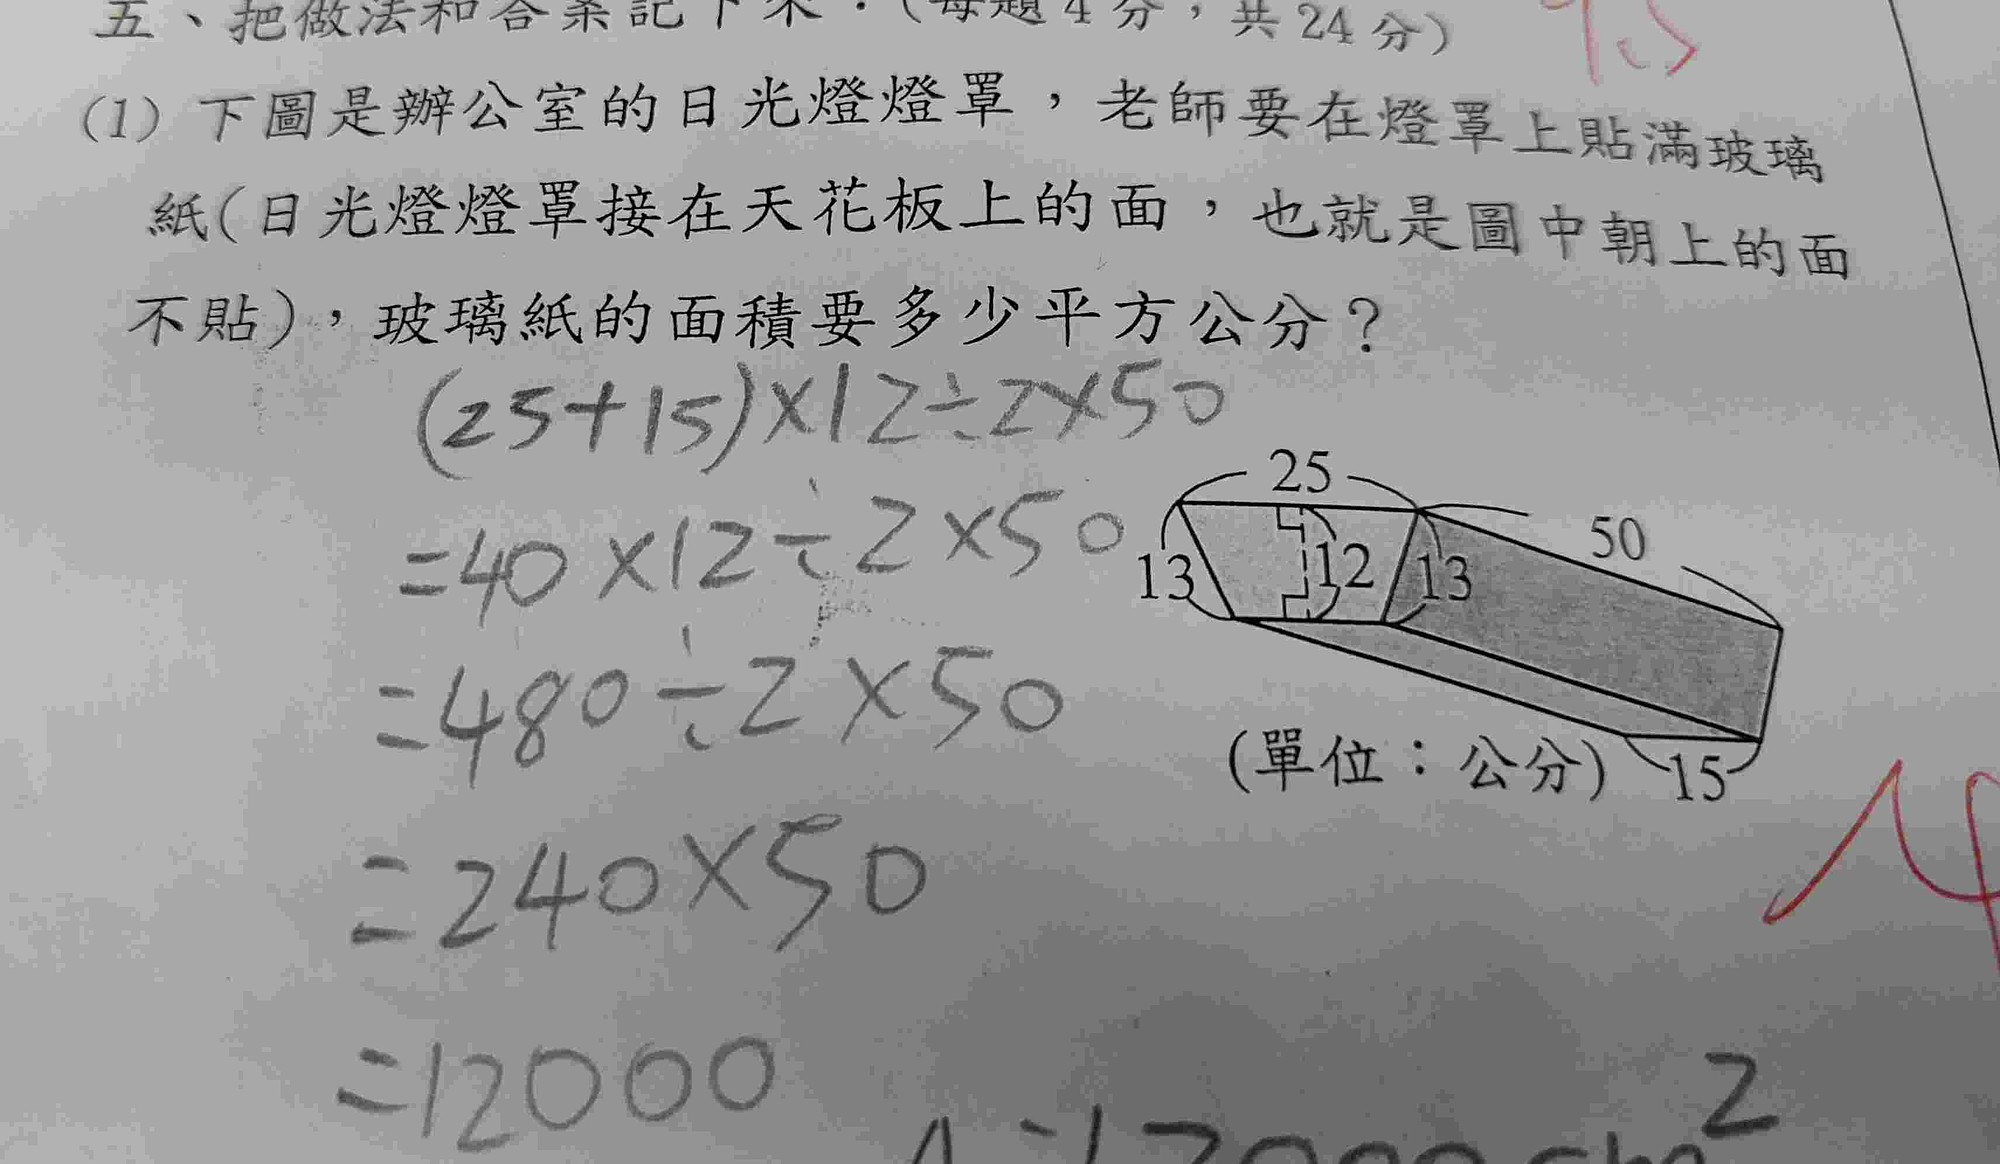 五、把做法和答案記下來：(每題4分，共24分)
(1) 下圖是辦公室的日光燈燈罩，老師要在燈罩上貼滿玻璃
紙(日光燈燈罩接在天花板上的面，也就是圖中朝上的面
不貼)，玻璃紙的面積要多少平方公分？
(25+15)×12÷2×50
=40×12÷2×50
=480÷2×50
=240×50
=12000
25
50
13
12
13
(單位：公分)
15
A:12000cm²